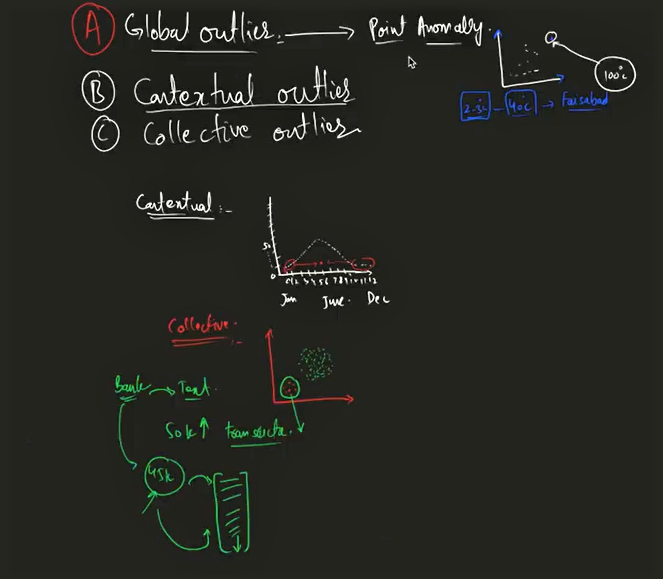 A Global outlier. → Point Anomally.
100°c
2-3°c - 40°c → Faisabad
B Contextual outlier
C Collective outlier
Contextual :-
50
0
Jan June. Dec
Collective. :-
Bank → Text.
50k ↑ transacta.
45k